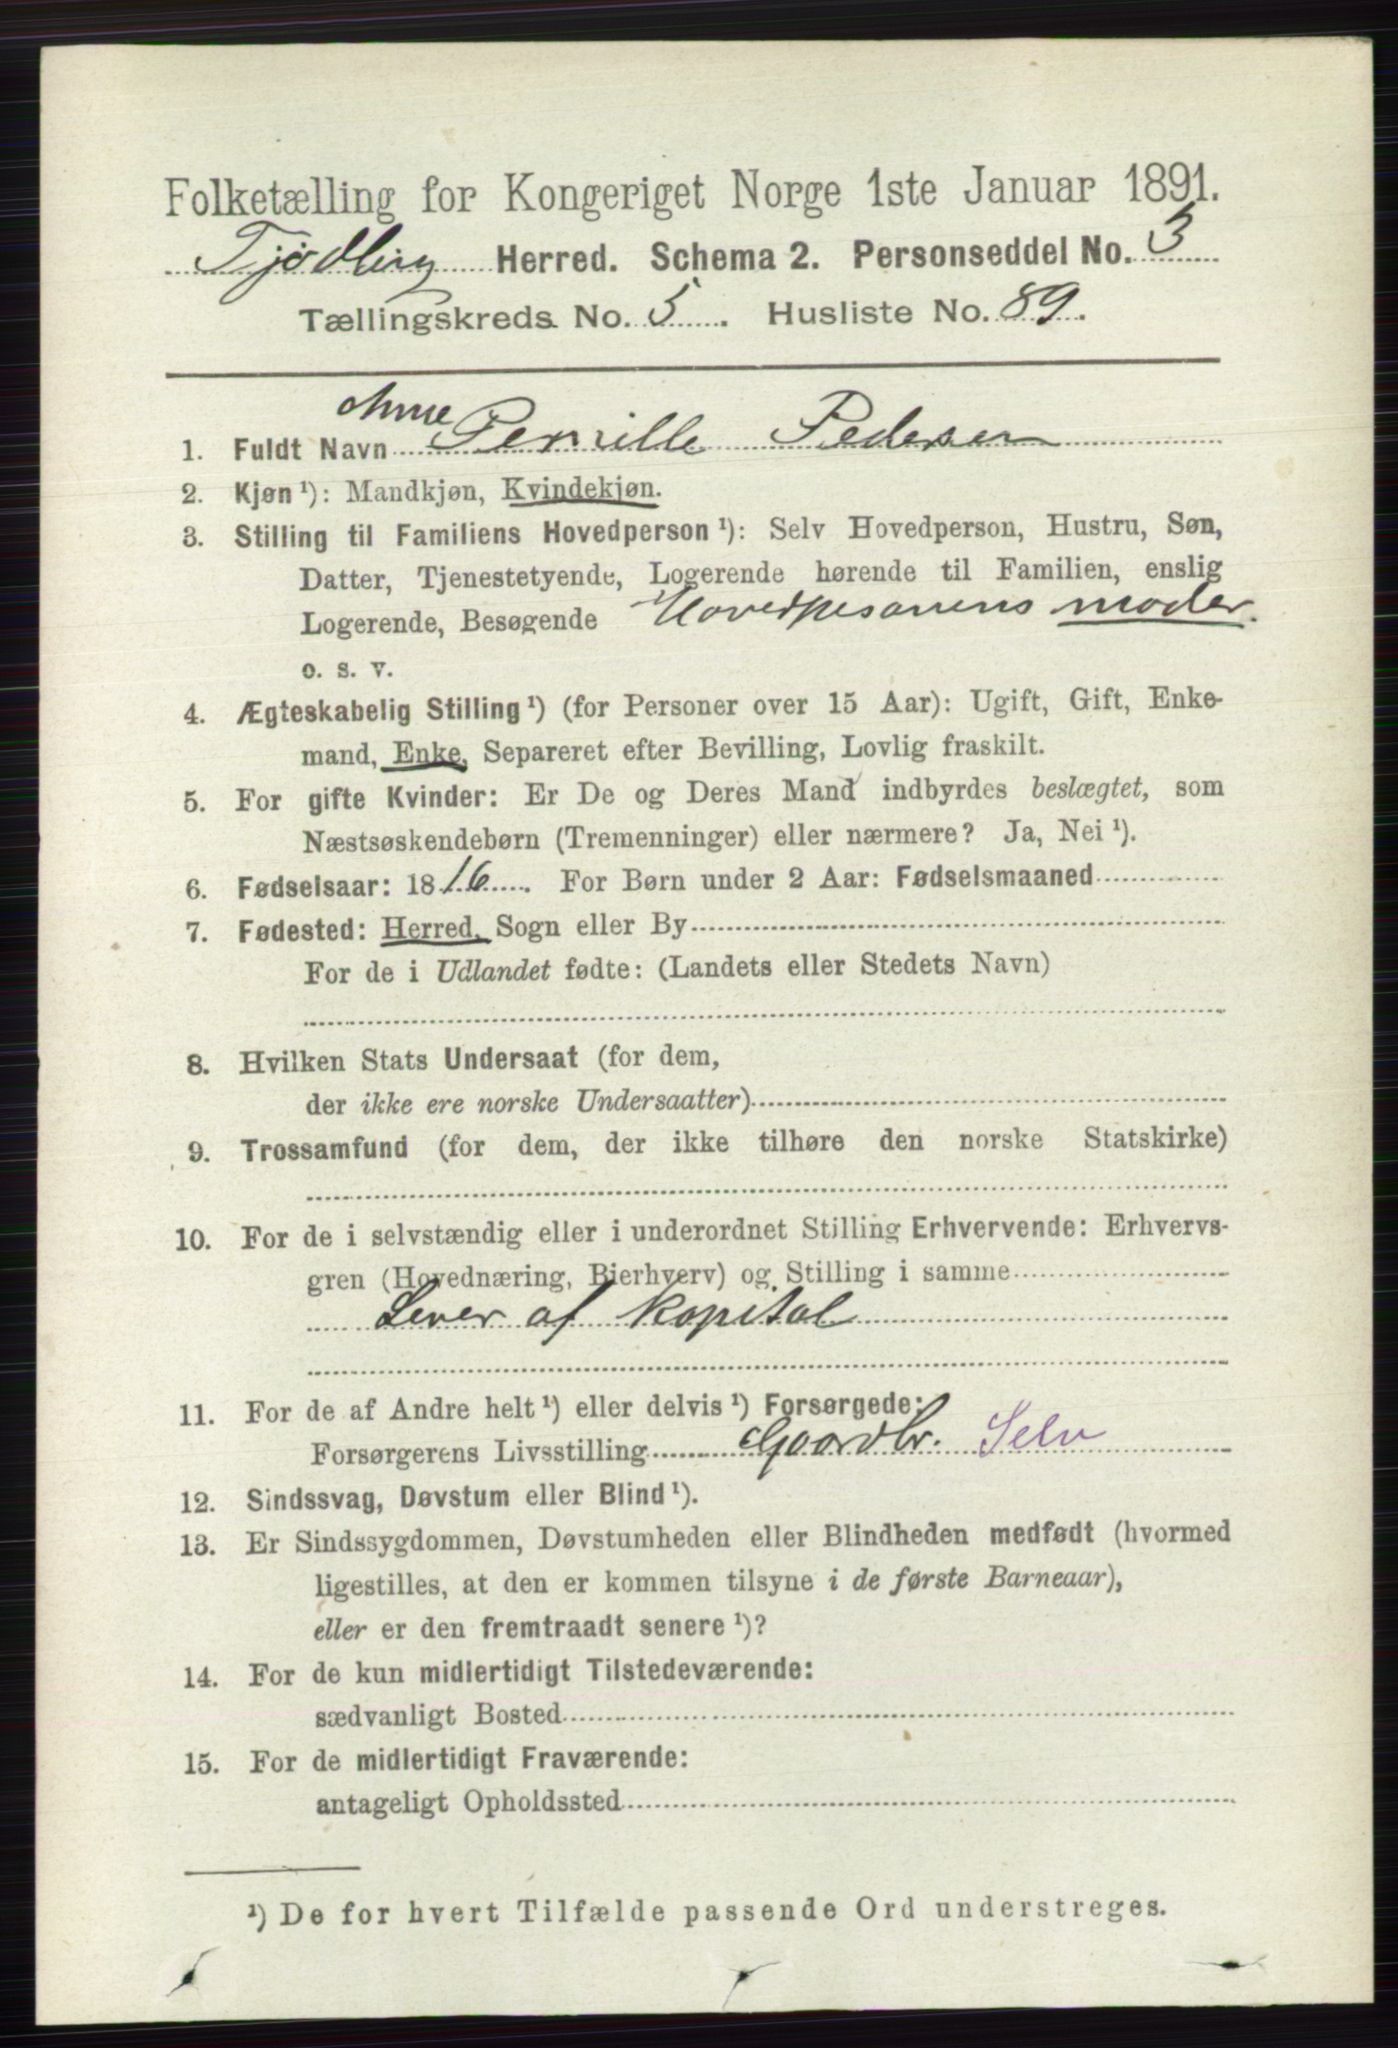 Folketælling for Kongeriget Norge 1ste Januar 1891.
Tjødling Herred. Schema 2. Personseddel No. 3
Tællingskreds No. 5. Husliste No. 89.
Anne
1. Fuldt Navn Pernille Pedersen
2. Kjøn ¹): Mandkjøn, Kvindekjøn.
3. Stilling til Familiens Hovedperson ¹): Selv Hovedperson, Hustru, Søn,
Datter, Tjenestetyende, Logerende hørende til Familien, enslig
Logerende, Besøgende Hovedpesonens moder.
o. s. v.
4. Ægteskabelig Stilling ¹) (for Personer over 15 Aar): Ugift, Gift, Enke-
mand, Enke, Separeret efter Bevilling, Lovlig fraskilt.
5. For gifte Kvinder: Er De og Deres Mand indbyrdes beslægtet, som
Næstsøskendebørn (Tremenninger) eller nærmere? Ja, Nei ¹).
6. Fødselsaar: 1816. For Børn under 2 Aar: Fødselsmaaned
7. Fødested: Herred, Sogn eller By
For de i Udlandet fødte: (Landets eller Stedets Navn)
8. Hvilken Stats Undersaat (for dem,
der ikke ere norske Undersaatter)
9. Trossamfund (for dem, der ikke tilhøre den norske Statskirke)
10. For de i selvstændig eller i underordnet Stilling Erhvervende: Erhvervs-
gren (Hovednæring, Bierhverv) og Stilling i samme
Lever af Kapital
11. For de af Andre helt ¹) eller delvis ¹) Forsørgede:
Forsørgerens Livsstilling Gaardbr. Selv
12. Sindssvag, Døvstum eller Blind ¹).
13. Er Sindssygdommen, Døvstumheden eller Blindheden medfødt (hvormed
ligestilles, at den er kommen tilsyne i de første Barneaar),
eller er den fremtraadt senere ¹)?
14. For de kun midlertidigt Tilstedeværende:
sædvanligt Bosted
15. For de midlertidigt Fraværende:
antageligt Opholdssted
¹) De for hvert Tilfælde passende Ord understreges.